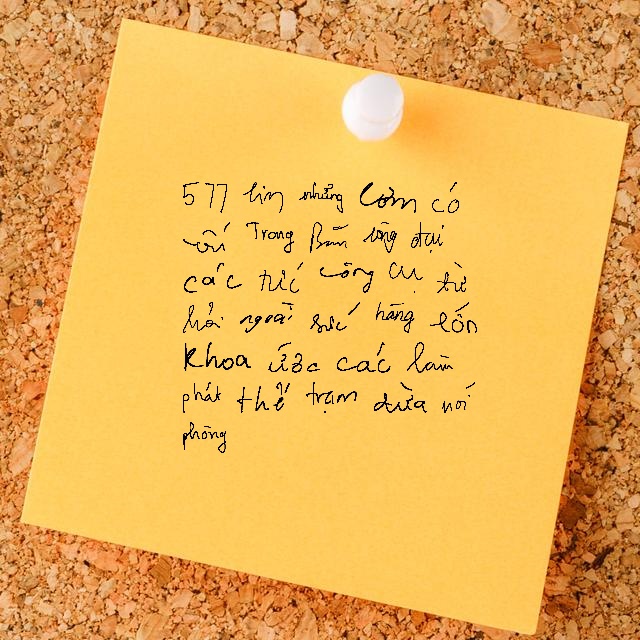 577 lin những Cơm có
với Trong Bản ứng đại
các tức công cụ từ
hỏi ngoài sức hãng lớn
Khoa ước các làm
phát thể trạm dừa nói
phòng